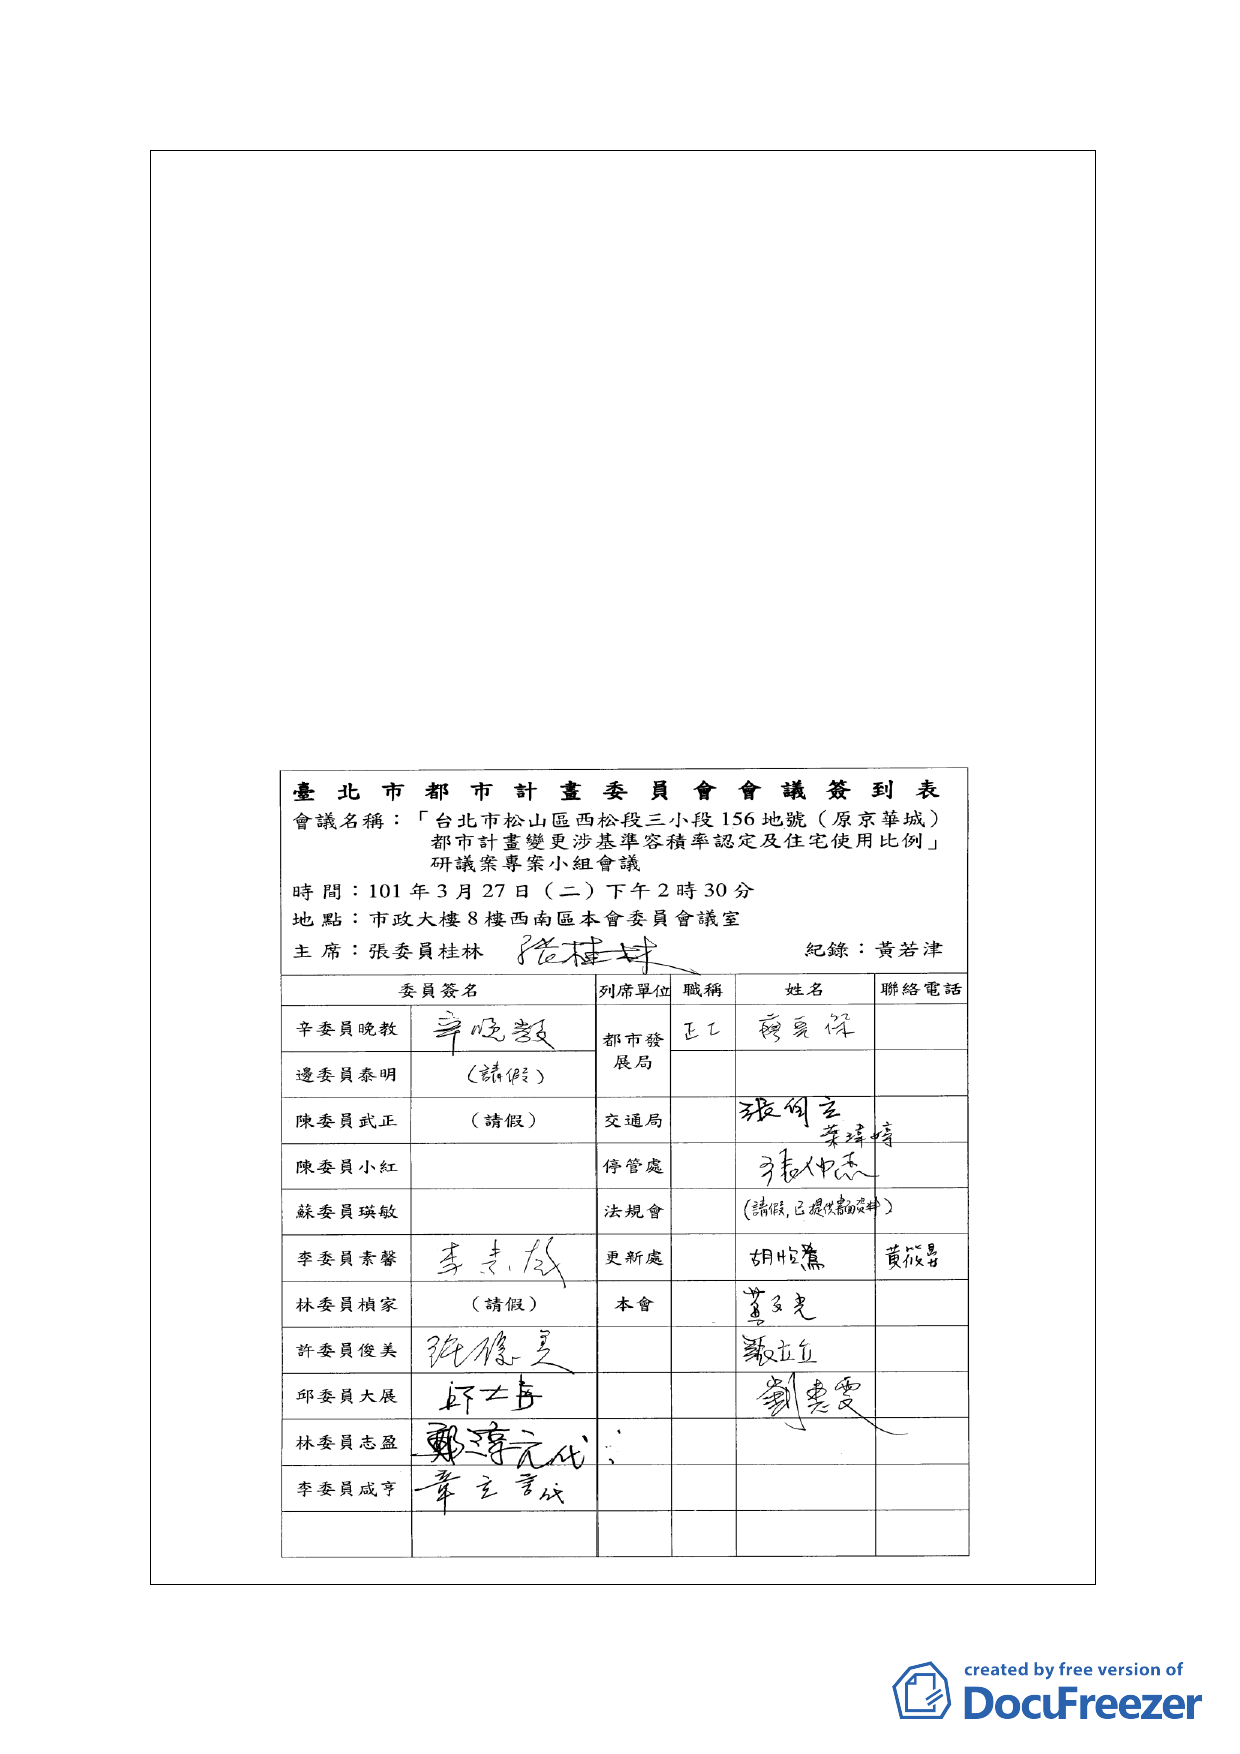 臺北市都市計畫委員會會議簽到表
會議名稱：「台北市松山區西松段三小段156地號（原京華城）
都市計畫變更涉基準容積率認定及住宅使用比例」
研議案專案小組會議
時間：101年3月27日（二）下午2時30分
地點：市政大樓8樓西南區本會委員會議室
主席：張委員桂林 張桂林 紀錄：黃若津
委員簽名 列席單位 職稱 姓名 聯絡電話
辛委員晚教 辛晚教 都市發展局
邊委員泰明 （請假）
陳委員武正 （請假） 交通局
葉瑋婷
陳委員小紅 停管處 張仲杰
蘇委員瑛敏 法規會 （請假，已提供書面資料）
李委員素馨 李素馨 更新處
林委員楨家 （請假） 本會
許委員俊美 許俊美
邱委員大展 邱大展 劉惠雯
林委員志盈 鄭淳元代
李委員咸亨 章立言代
created by free version of
DocuFreezer